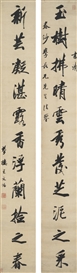 玉樹拂晴雲秀發芝泥之采
新芸凝湛露香浮蘭檢之春